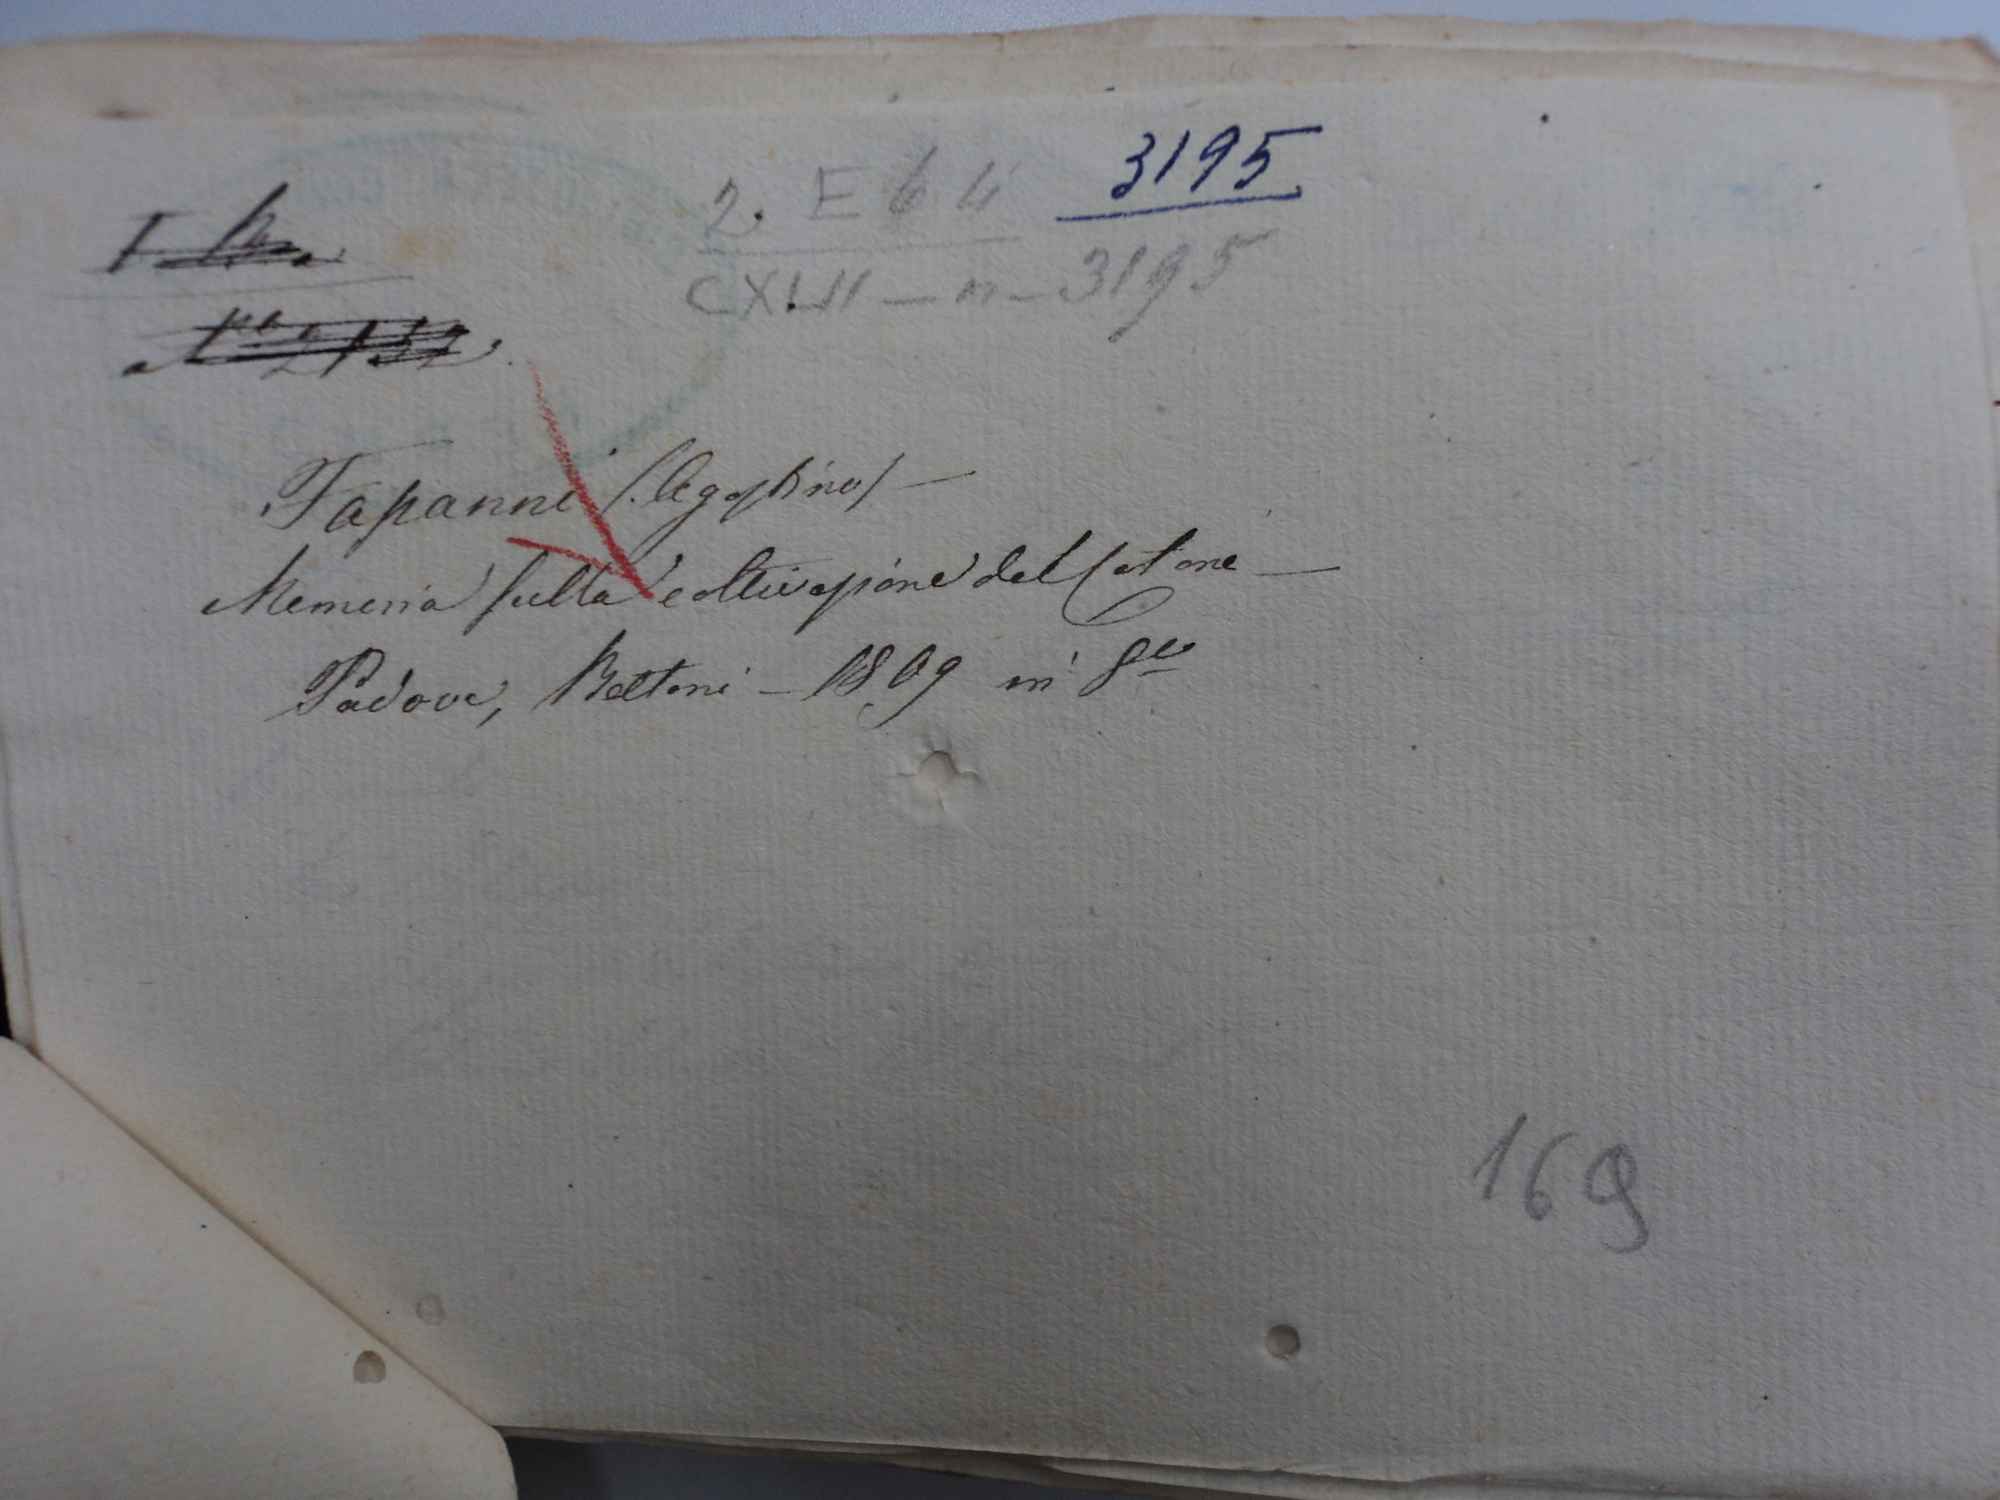 3195
2. E 6 4
CXLII - n - 3195
Fapanni (Agostino) —
Memoria sulla coltivazione del Cotone —
Padova, Bettoni - 1809 in 8vo
169